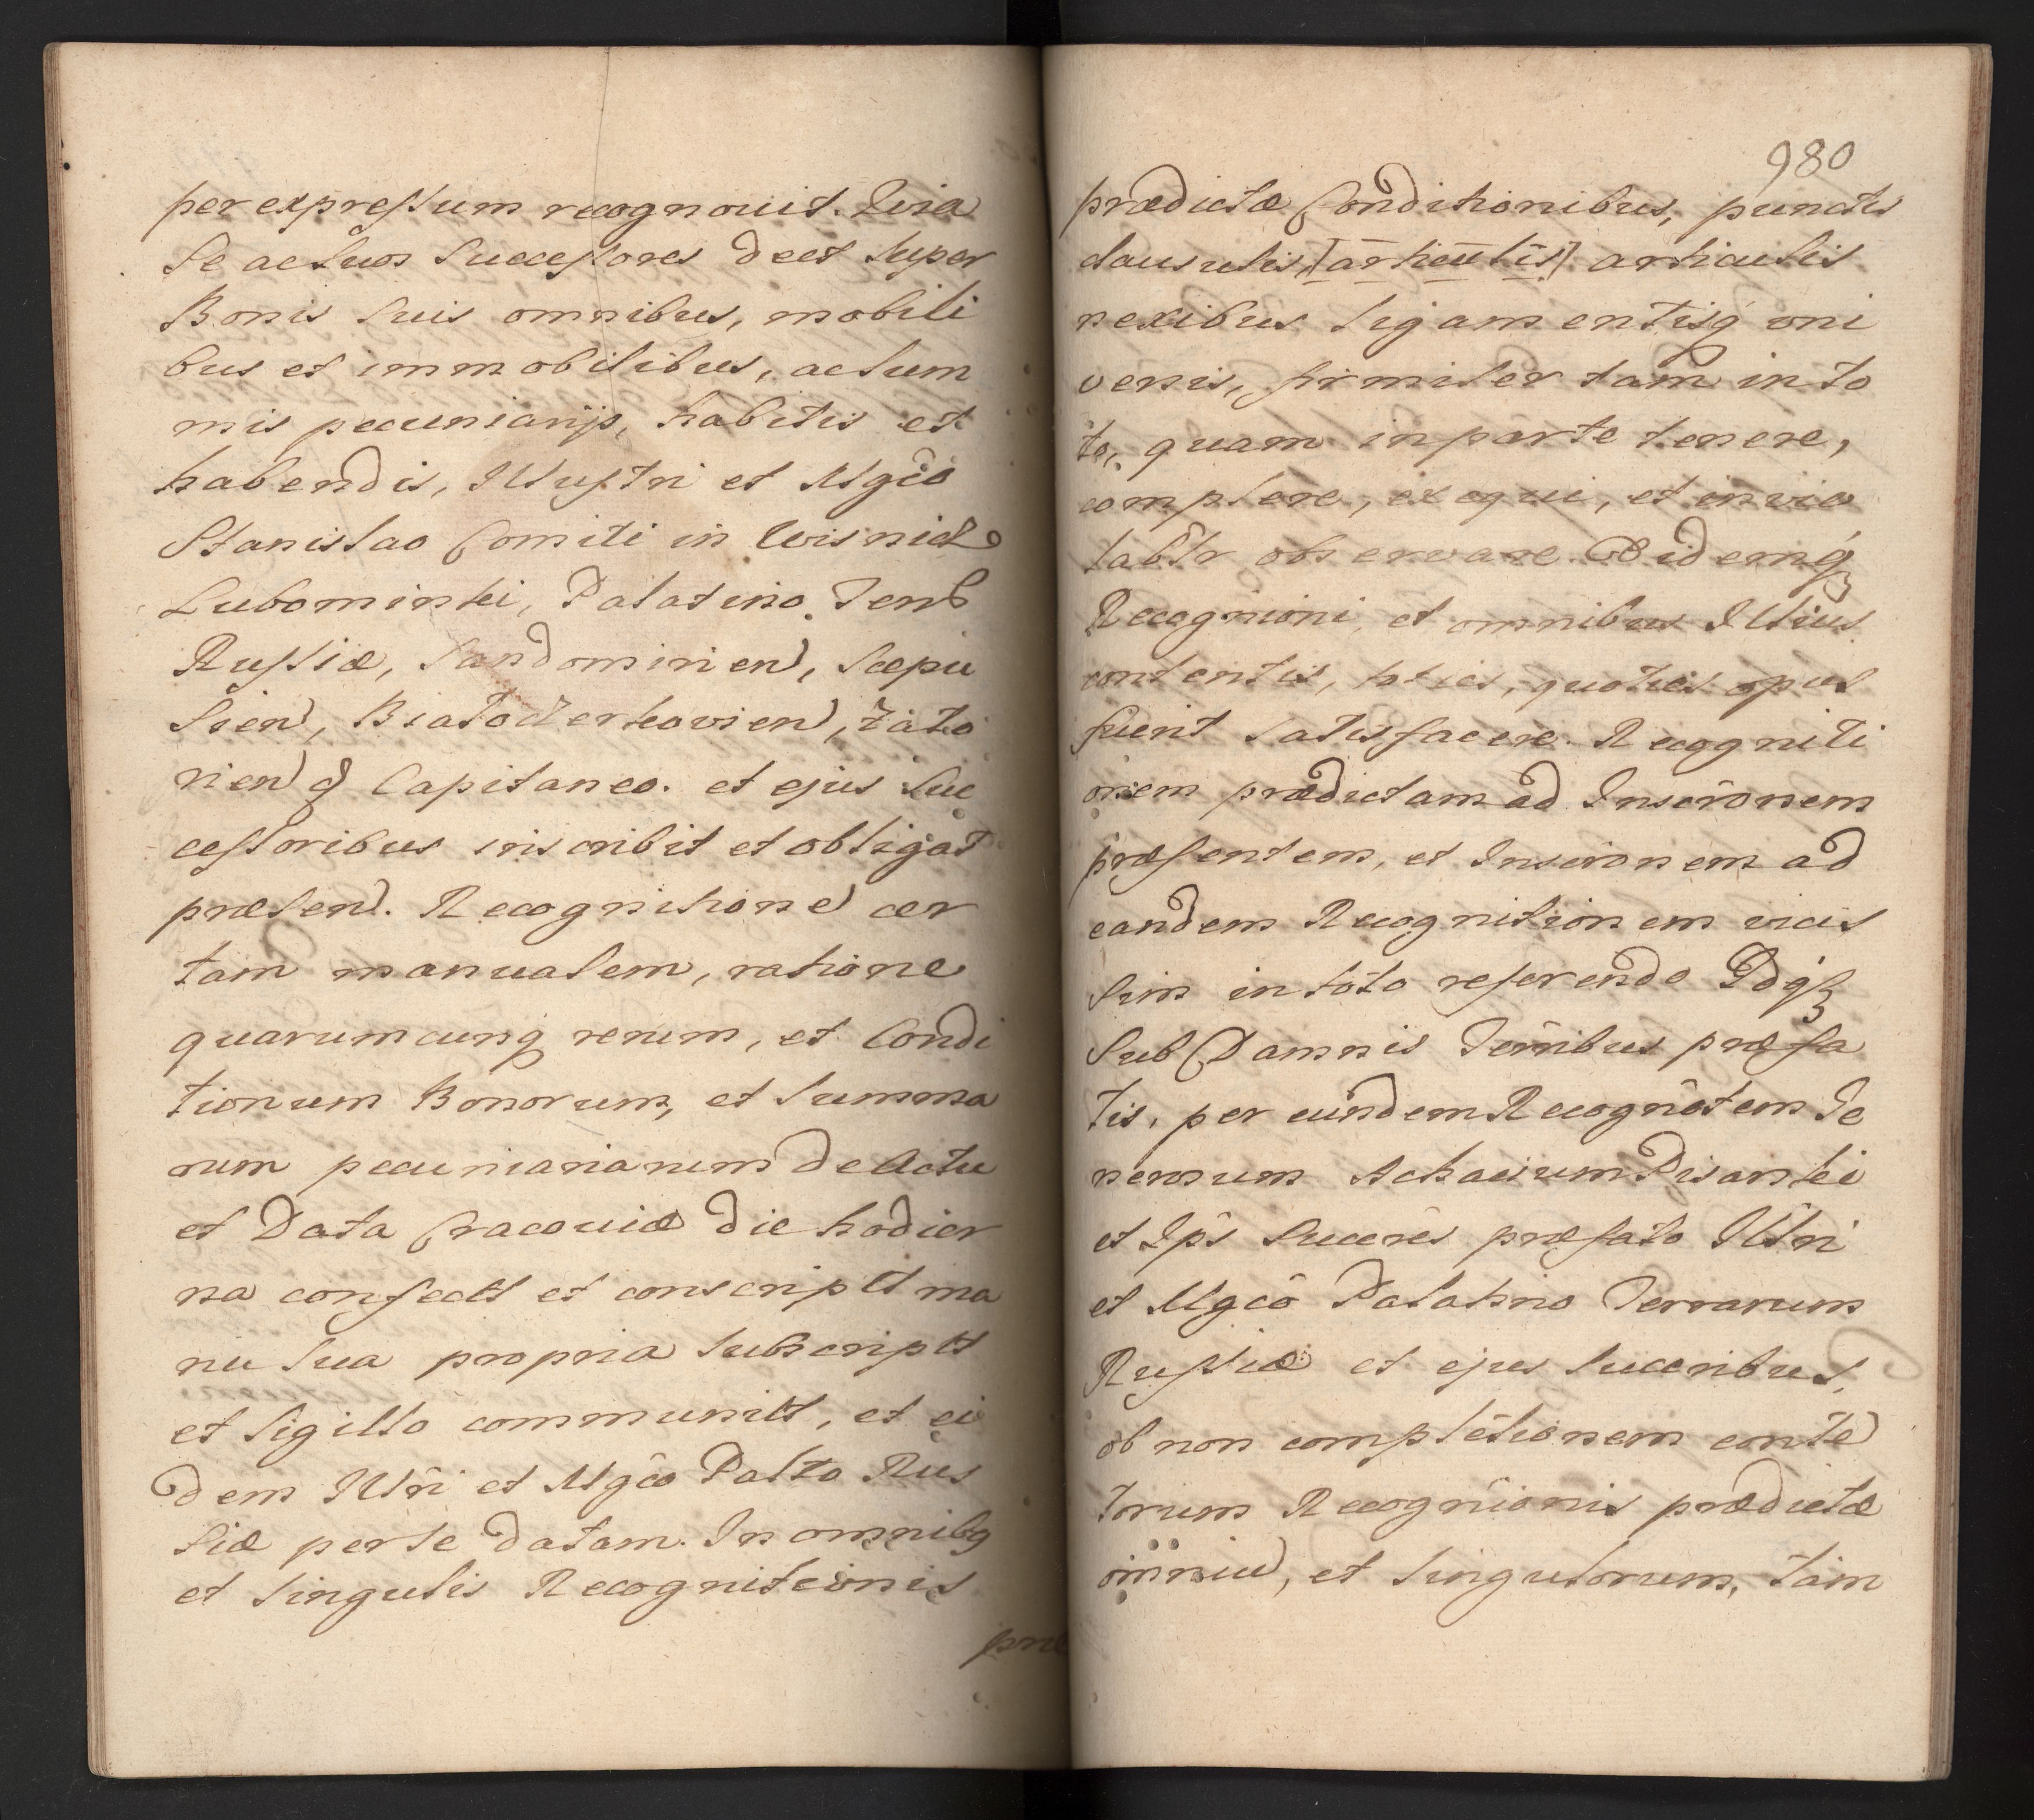 per expressum recognovit. Quia
Se ac Suos Successores deet Super
Bonis Suis omnibus, mobili
bus et immobilibus, ac Sum
mis pecuniarijs, habitis et
habendis, Illustri et Mgco
Stanislao Comiti in Wisnicz
Lubomirski, Palatino Terr
Russiæ, Sandomirien, Scepu
sien, Białocerkovien, Zato
rien q Capitaneo. et ejus Suc
cessoribus inscribit et obligat
præsen. Recognitione cer
tam manualem, ratione
quarumcunq rerum, et Condi
tionum Bonorum, et Summa
rum pecuniariarum de Actu
et Data Cracoviæ die hodier
na confectt et conscriptt ma
nu Sua propria Subscriptt
et Sigillo communitt, et ei
dem Illri et Mgco Palto Rus
siæ per Se datam. In omnibq
et Singulis Recognitionis
præ
980
prædictæ Conditionibus, punctis
clausulis, [articulis] articulis
nexibus ligamentisq uni
versis, firmiter tam in to
to, quam in parte tenere,
complere, exequi, et invio
labtr observare. Eidemq
Recognioni, et omnibus Illius
contentis, toties, quoties opus
fuerit satisfacere. Recogniti
onem prædictam ad Inscronem
præsentem, et Inscronem ad
eandem Recognitionem vicis
sim in toto referendo Idqz
Sub Damnis Terribus præfa
tis, per eundem Recognotem Ge
nerosum Achacium Pisarski
et Ips Succres præfato Illri
et Mgco Palatino Terrarum
Russiæ et ejus Succribus,
ob non completionem conte
torum Recognionis prædictæ
omniu, et Singulorum, tam